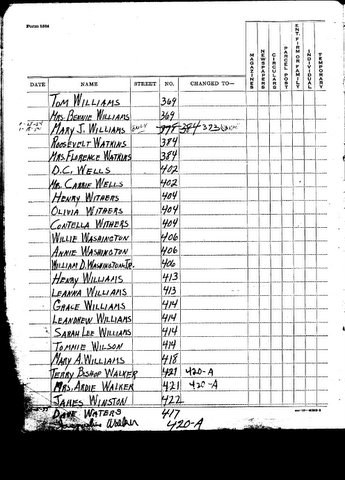 Form 1564
MAGAZINES
NEWSPAPERS
CIRCULARS
PARCEL POST
ENT. FIRM OR FAMILY
INDIVIDUAL
TEMPORARY
DATE NAME STREET NO. CHANGED TO—
TOM WILLIAMS 369
MRS. BENNIE WILLIAMS 369
MARY J. WILLIAMS ONLY 378 384 373
ROOSEVELT WATKINS 384
MRS. FLORENCE WATKINS 384
D.C. WELLS 402
MR. CARRIE WELLS 402
HENRY WITHERS 404
OLIVIA WITHERS 404
CONTELLA WITHERS 404
WILLIE WASHINGTON 406
ANNIE WASHINGTON 406
WILLIAM D. WASHINGTON, JR. 406
HENRY WILLIAMS 413
LEANNA WILLIAMS 413
GRACE WILLIAMS 414
LEANDREW WILLIAMS 414
SARAH LEE WILLIAMS 414
TOMMIE WILSON 414
MARY A. WILLIAMS 418
TERRY BISHOP WALKER 421 420-A
MRS. ARDIE WALKER 421 420-A
JAMES WINSTON 422
DAVE WATERS 417
Jacqueline Walker 420-A